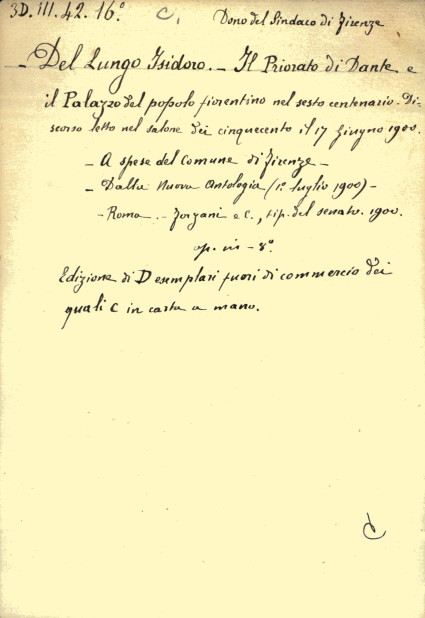 3D. III. 42. 16.° C. Dono del Sindaco di Firenze
- Del Lungo Isidoro. - Il Priorato di Dante e
il Palazzo del popolo fiorentino nel sesto centenario - Di-
scorso letto nel salone dei cinquecento il 17 Giugno 1900.
- A spese del Comune di Firenze -
- Dalla Nuova Antologia (1.° luglio 1900) -
- Roma. - Forzani e C., tip. del senato. 1900.
op. in - 8°
Edizione di D esemplari fuori di commercio dei
quali C in carta a mano.